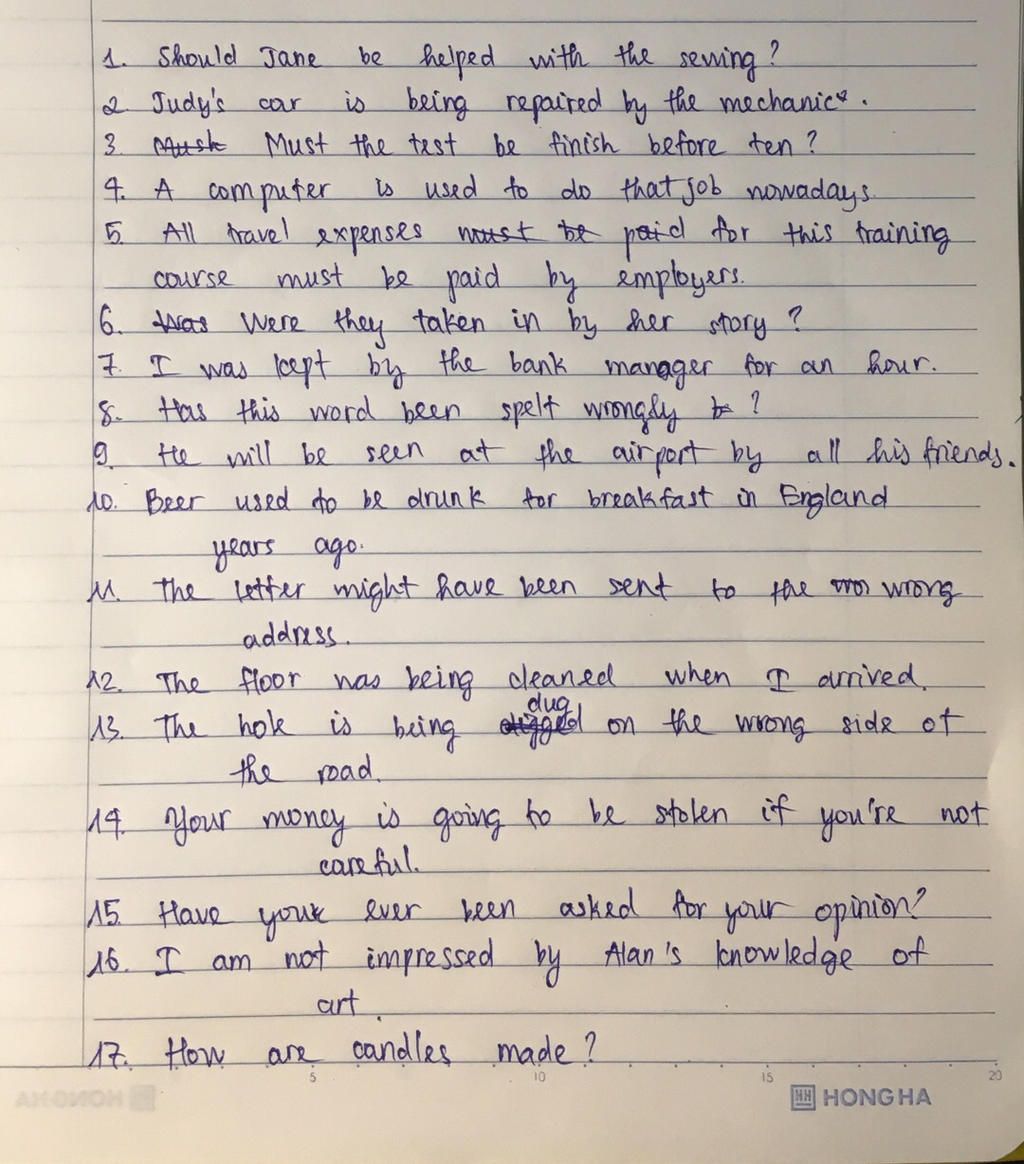 1. Should Jane be helped with the sewing?
2. Judy's car is being repaired by the mechanic.
3. Must Must the test be finish before ten?
4. A computer is used to do that job nowadays.
5. All travel expenses must be paid for this training
course must be paid by employers.
6. Was Were they taken in by her story?
7. I was kept by the bank manager for an hour.
8. Has this word been spelt wrongly ?
9. He will be seen at the airport by all his friends.
10. Beer used to be drunk for breakfast in England
years ago.
11. The letter might have been sent to the wrong
address.
12. The floor was being cleaned when I arrived.
dug
13. The hole is being digged on the wrong side of
the road.
14. Your money is going to be stolen if you're not
careful.
15. Have you ever been asked for your opinion?
16. I am not impressed by Alan's knowledge of
art.
17. How are candles made?
5 10 15 20
HH HONG HA